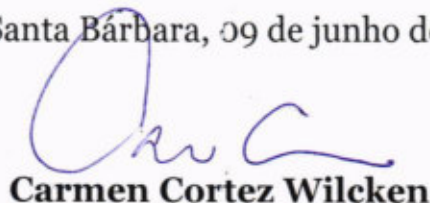 Santa Bárbara, 09 de junho de
Carmen Cortez Wilcken